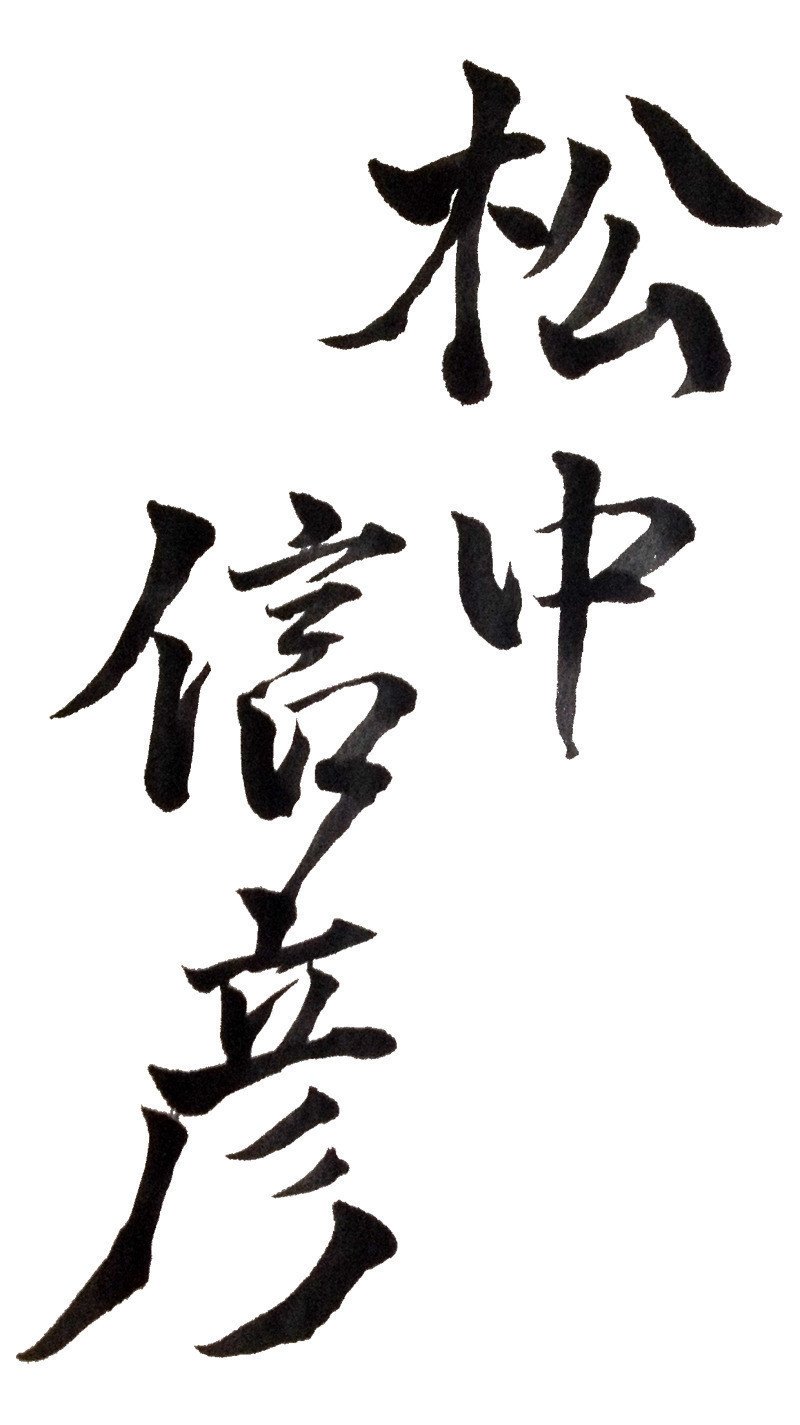 松中
信彦